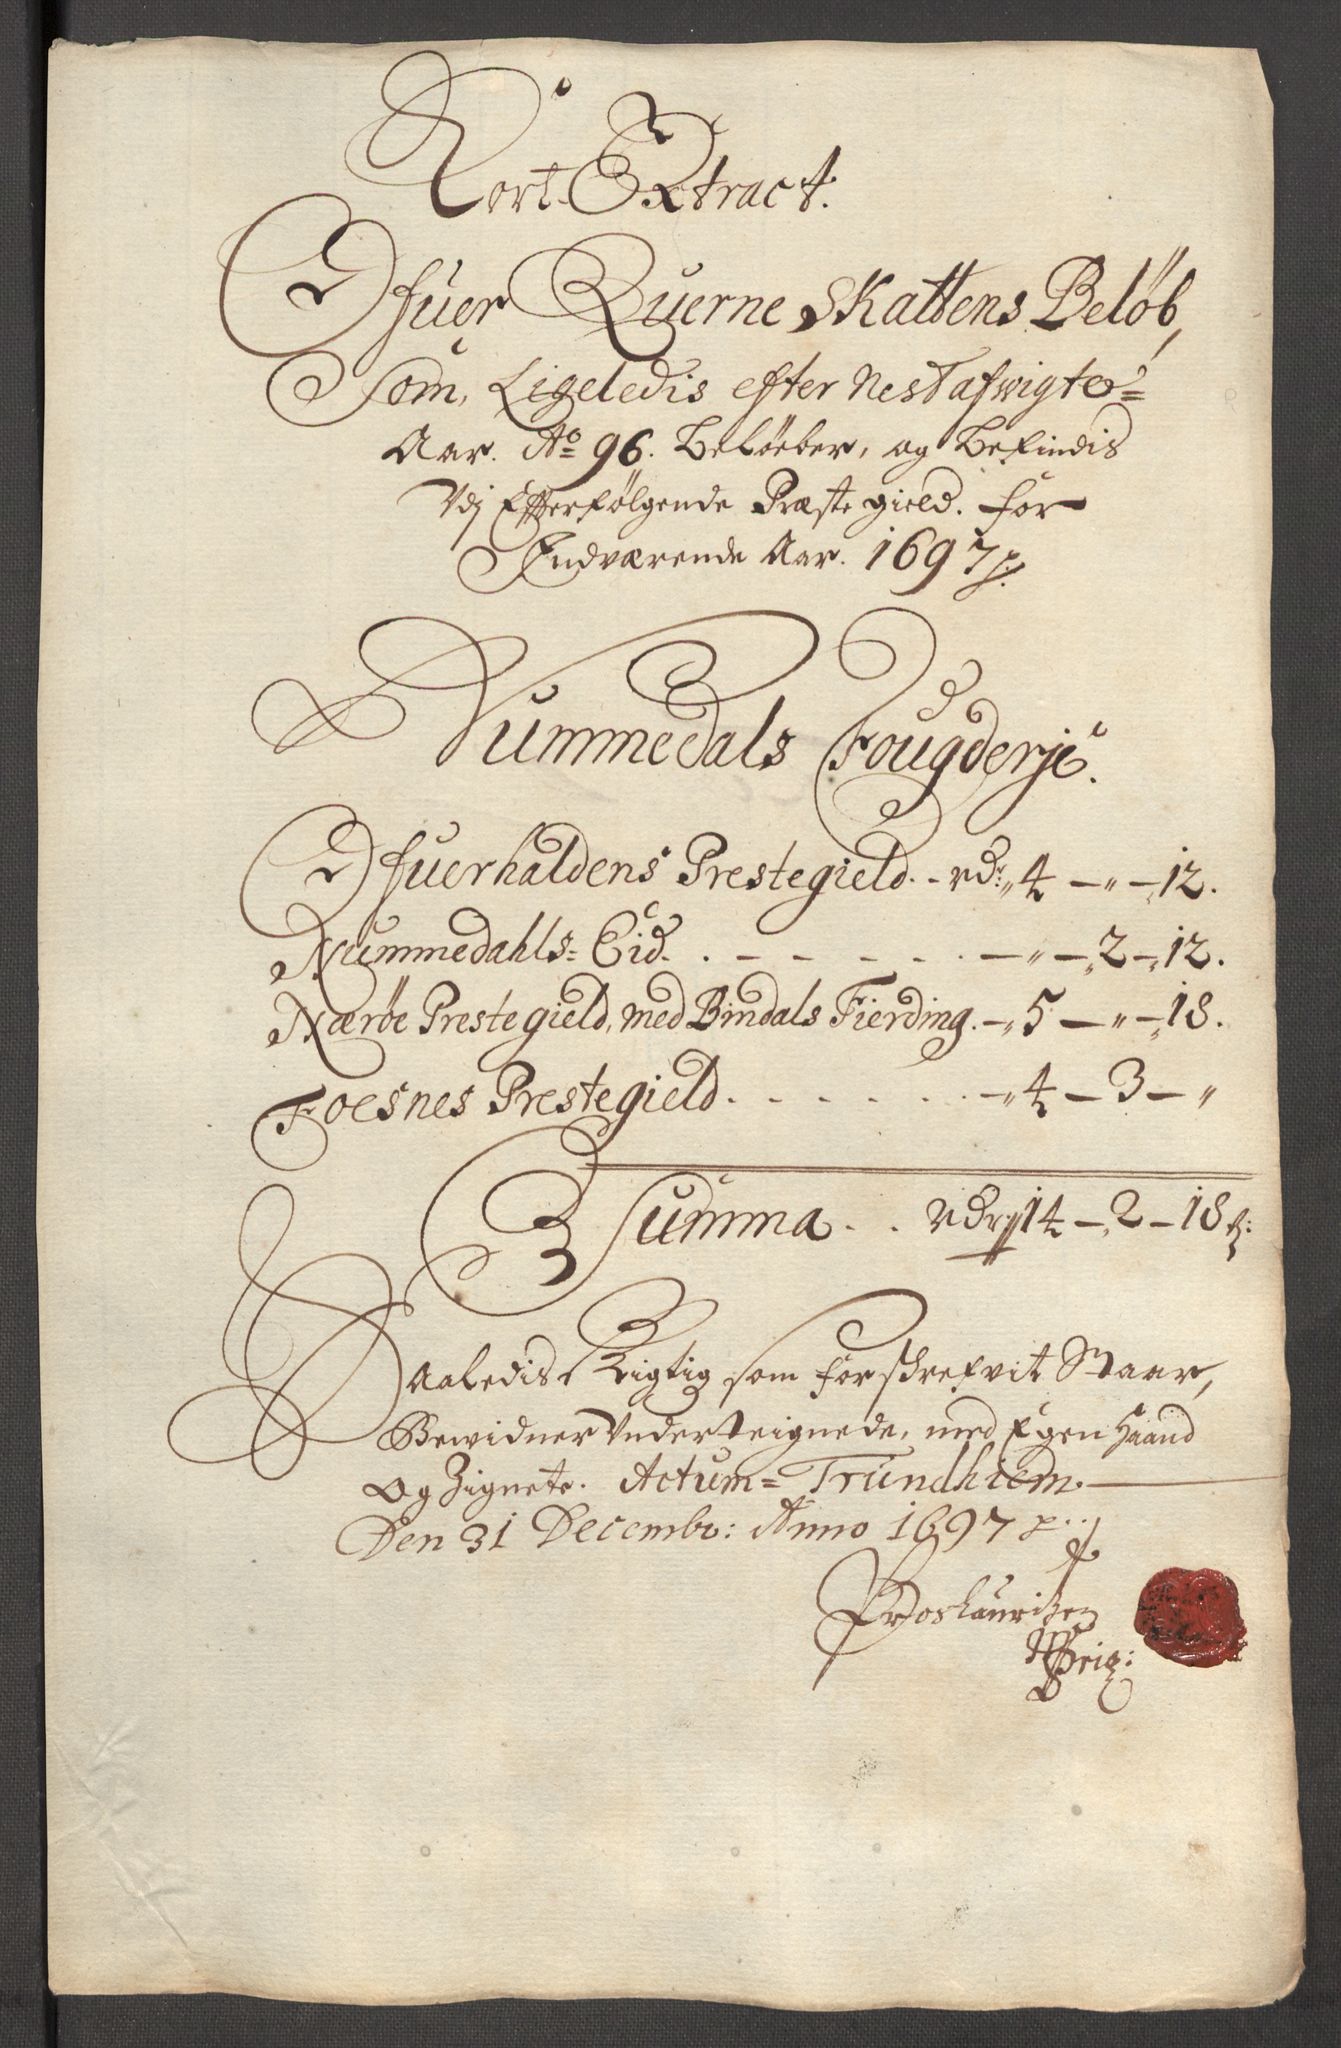 Kort Extract.
Ofuer Querne Skattens Beløb,
Som, Ligeledis efter Nest afwigte
Aar. Ao 96. Beløeber, og befindis
Vdj Efterfølgende Præste gield. for
Indværende Aar. 1697 p.
Nummedals Fougderje.
Ofuerhaldens Prestegield. - rdr: 4 - " - 12.
Nummedahls= Eid. . - - - - - " - 2 - 12.
Nærøe Prestegield, med Bindals Fierding. - 5 - " - 18.
Foesnes Prestegield . . . . . . - 4 - 3 - "
Summa . . Rdr 14 - 2 - 18 ß:
Saaledis Rigtig som forskrefvit Staar,
Bewidner Vnderteignede, med Egen Haand
og Zignete. Actum= Trundhiem.
Den 31 Decembr: Anno 1697 p.
Lauritzen